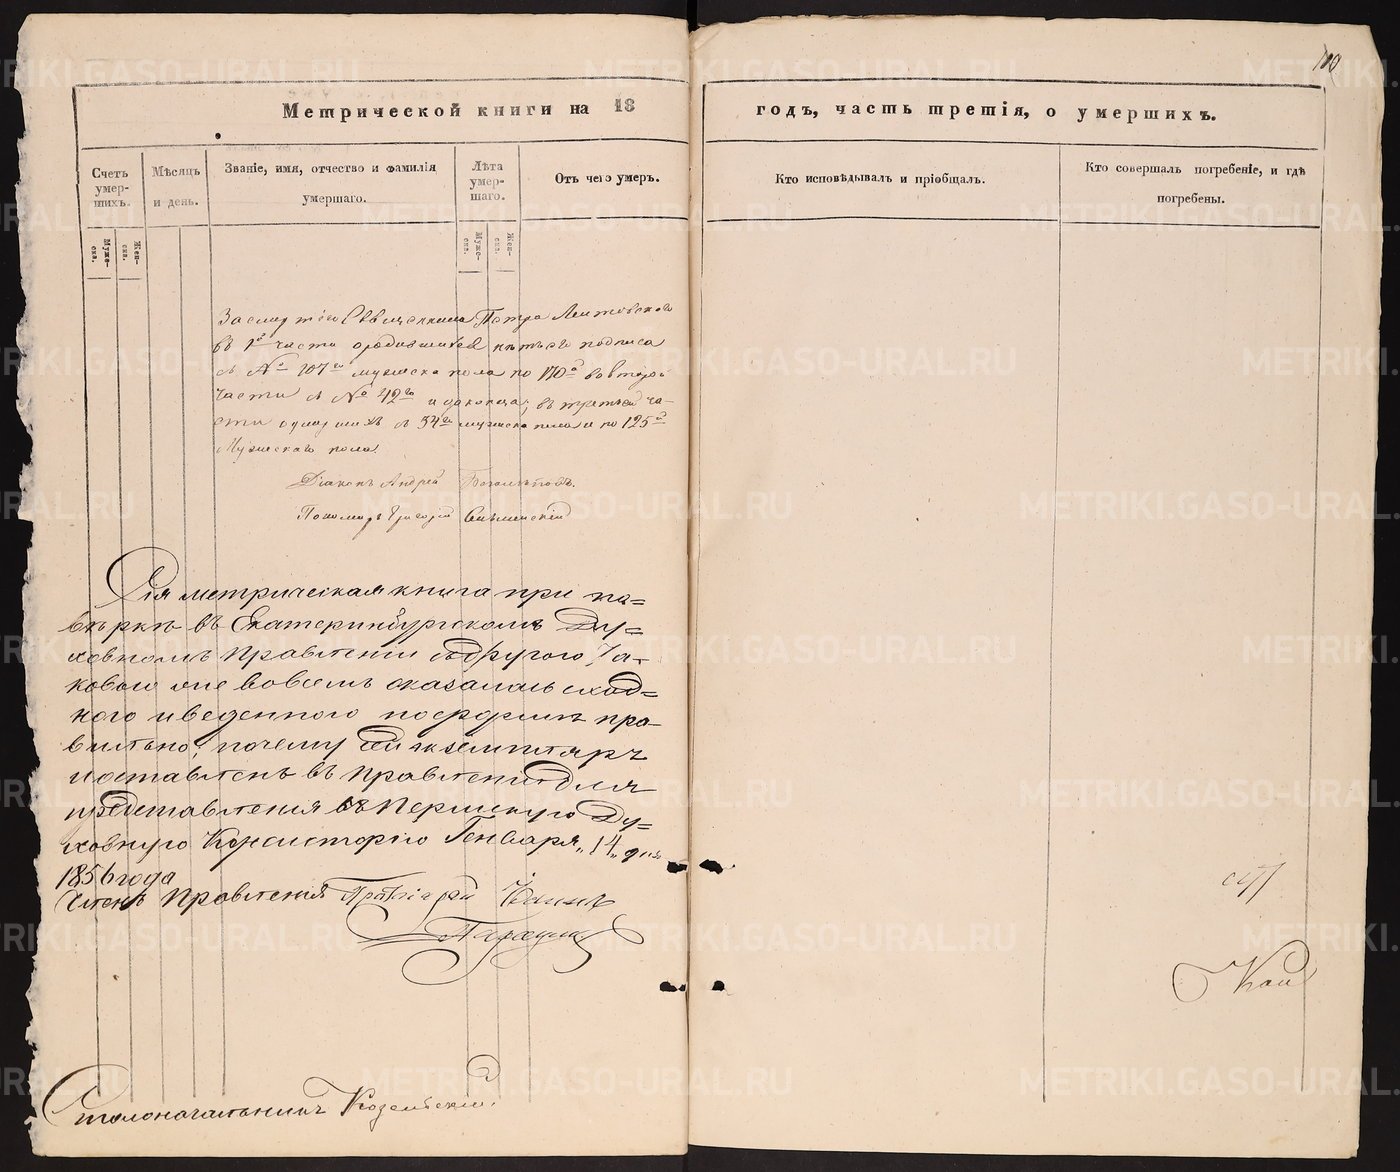 100
Метрической книги на 18
годъ, часть третія, о умершихъ.
Счетъ умер-шихъ.
Мѣсяцъ и день.
Званіе, имя, отчество и фамилія умершаго.
Лѣта умер-шаго.
Отъ чего умеръ.
Кто исповѣдывалъ и пріобщалъ.
Кто совершалъ погребеніе, и гдѣ погребены.
Муже-ска.
Жен-ска.
Муже-ска.
Жен-ска.
За смертію Священника Петра
въ 1й части о родившихся нѣтъ его подписа
съ № 107го мужеска пола по 170й во второй
части съ № 42го и до конца; въ третьей ча-
сти о умершихъ съ 54го мужеска пола и по 125й
Мужескаго пола
Діаконъ Андрей
Пономарь Григорій
Сія метрическая книга при по-
вѣркѣ въ Екатеринбургскомъ Ду-
ховномъ Правленіи съ другою та-
ковою же во всемъ оказалась сход-
ною и веденною по формѣ пра-
вильно, почему сей экземпляръ
и оставленъ въ Правленіи для
представленія въ Пермскую Ду-
ховную Консисторію Генваря „14„ дня
1856 года
Членъ Правленія Протоіерей Іоаннъ
Столоначальникъ